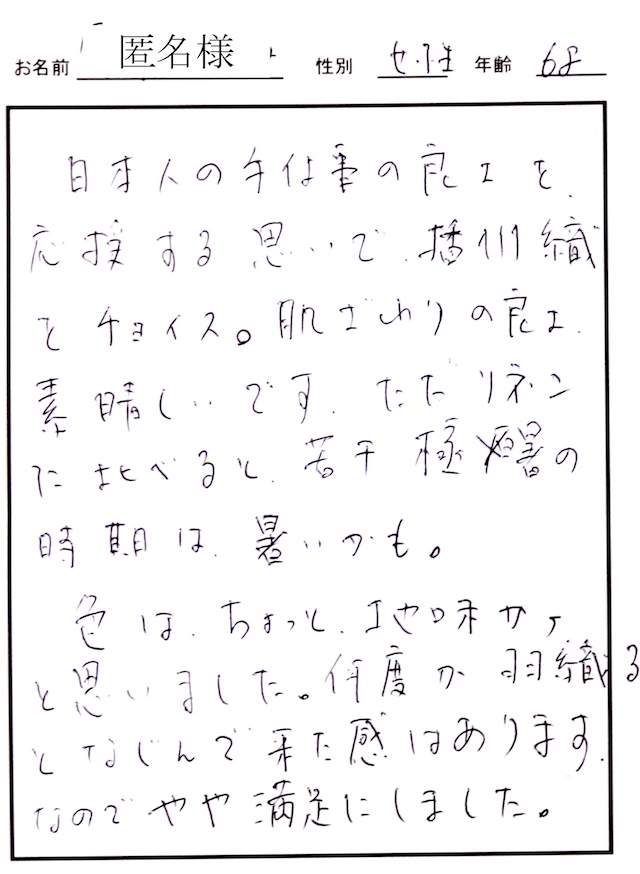 お名前 匿名様 性別 女性 年齢 68
日本人の手仕事の良さを、
応援する思いで、播州織
をチョイス。肌ざわりの良さ、
素晴しいです。ただリネン
に比べると、若干極暑の
時期は、暑いかも。
色は、ちょっと、地味かナ
と思いました。何度か羽織る
となじんで来た感はあります。
なのでやや満足にしました。